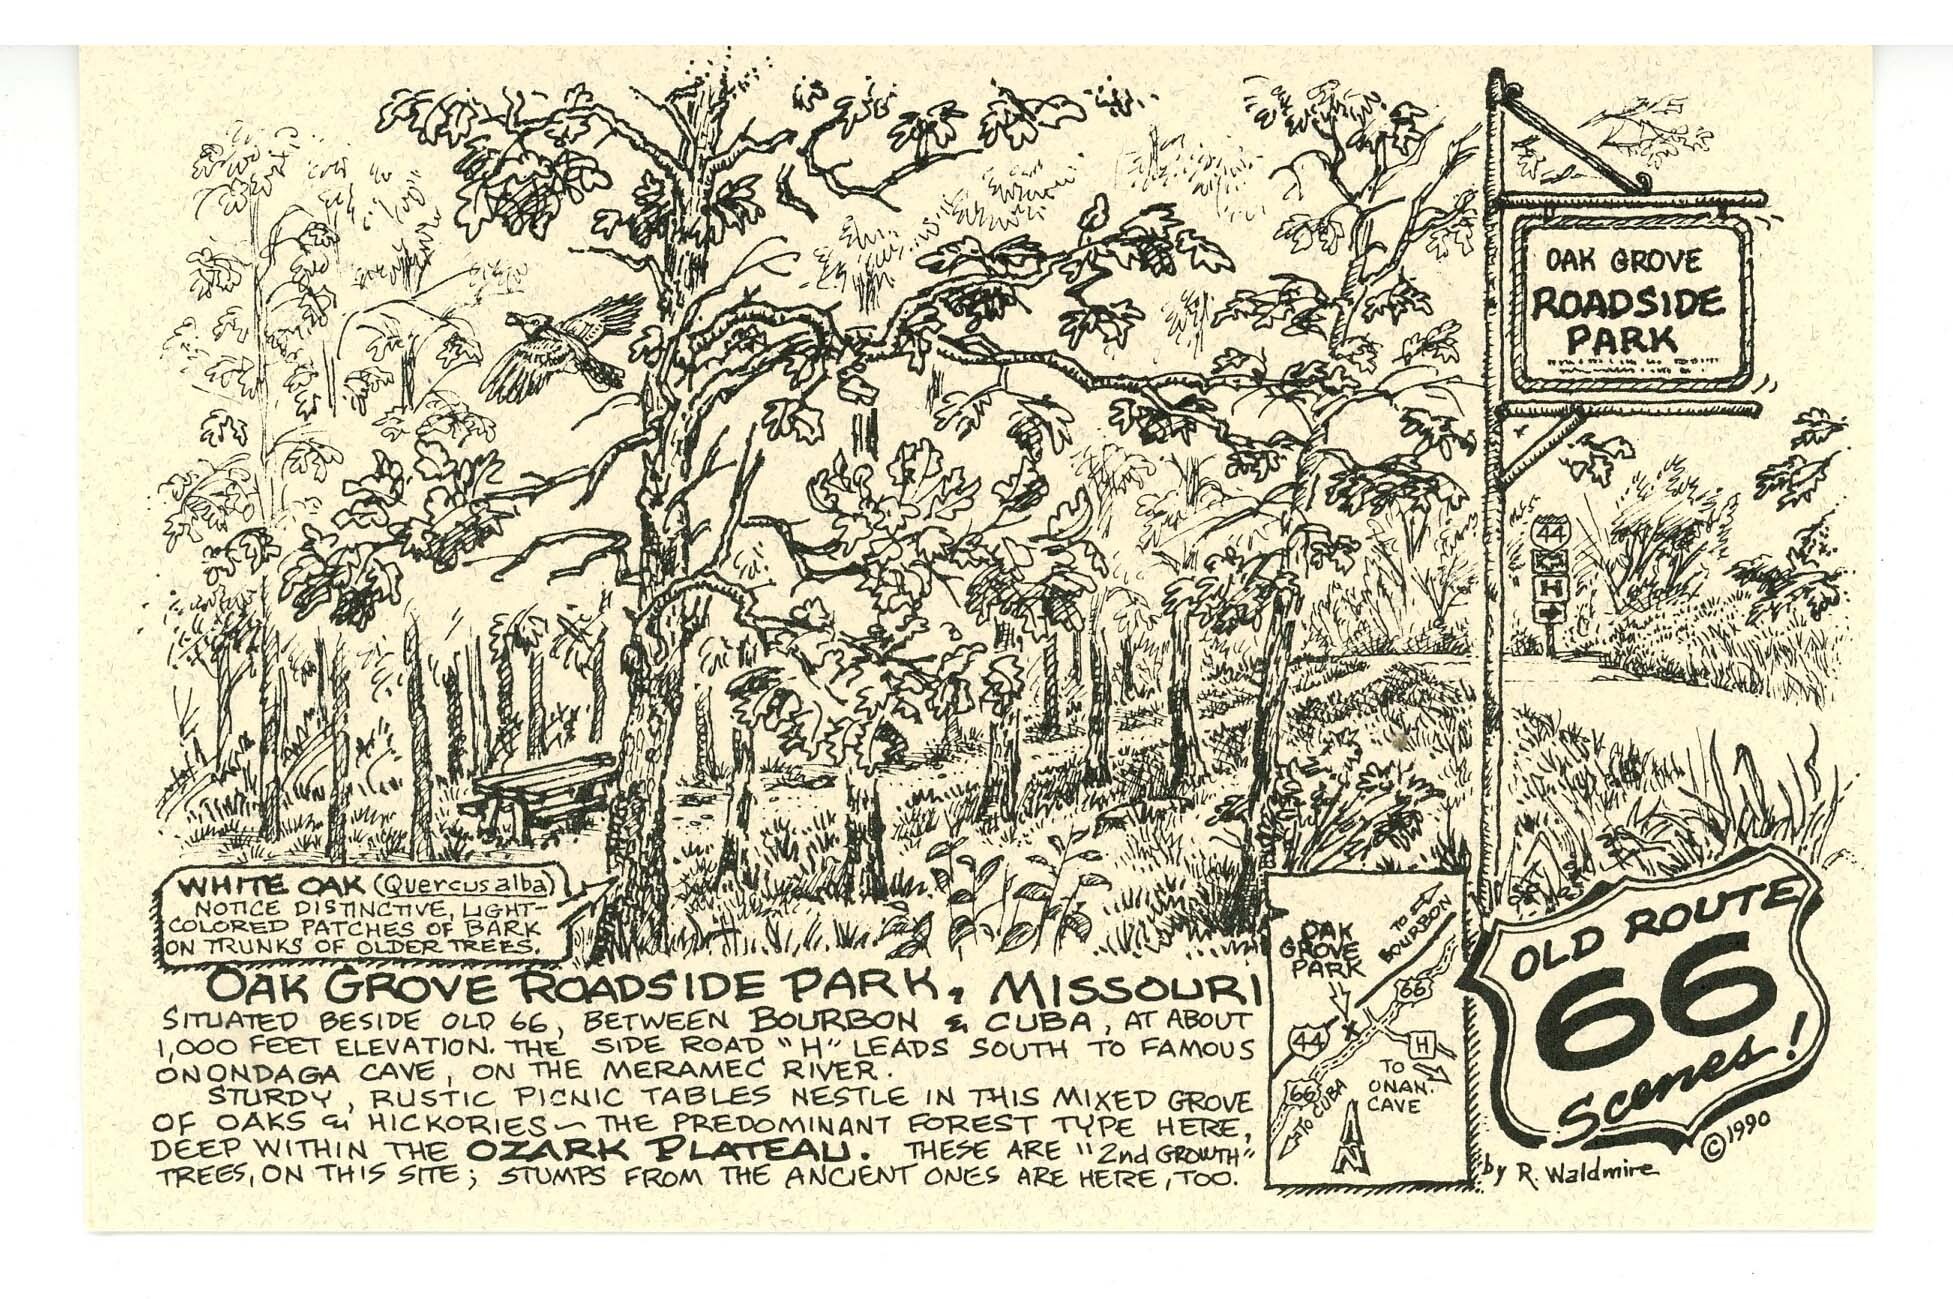 OAK GROVE
ROADSIDE
PARK
44
H
WHITE OAK (Quercus alba)
NOTICE DISTINCTIVE, LIGHT-
COLORED PATCHES OF BARK
ON TRUNKS OF OLDER TREES.
OAK GROVE ROADSIDE PARK, MISSOURI
SITUATED BESIDE OLD 66, BETWEEN BOURBON & CUBA, AT ABOUT
1,000 FEET ELEVATION. THE SIDE ROAD "H" LEADS SOUTH TO FAMOUS
ONONDAGA CAVE, ON THE MERAMEC RIVER.
STURDY, RUSTIC PICNIC TABLES NESTLE IN THIS MIXED GROVE
OF OAKS & HICKORIES ~ THE PREDOMINANT FOREST TYPE HERE,
DEEP WITHIN THE OZARK PLATEAU. THESE ARE "2nd GROWTH"
TREES, ON THIS SITE; STUMPS FROM THE ANCIENT ONES ARE HERE, TOO.
TO
BOURBON
OAK
GROVE
PARK
66
44
X
H
TO
ONAN.
CAVE
66
TO CUBA
N
OLD ROUTE
66
Scenes!
©1990
by R. Waldmire